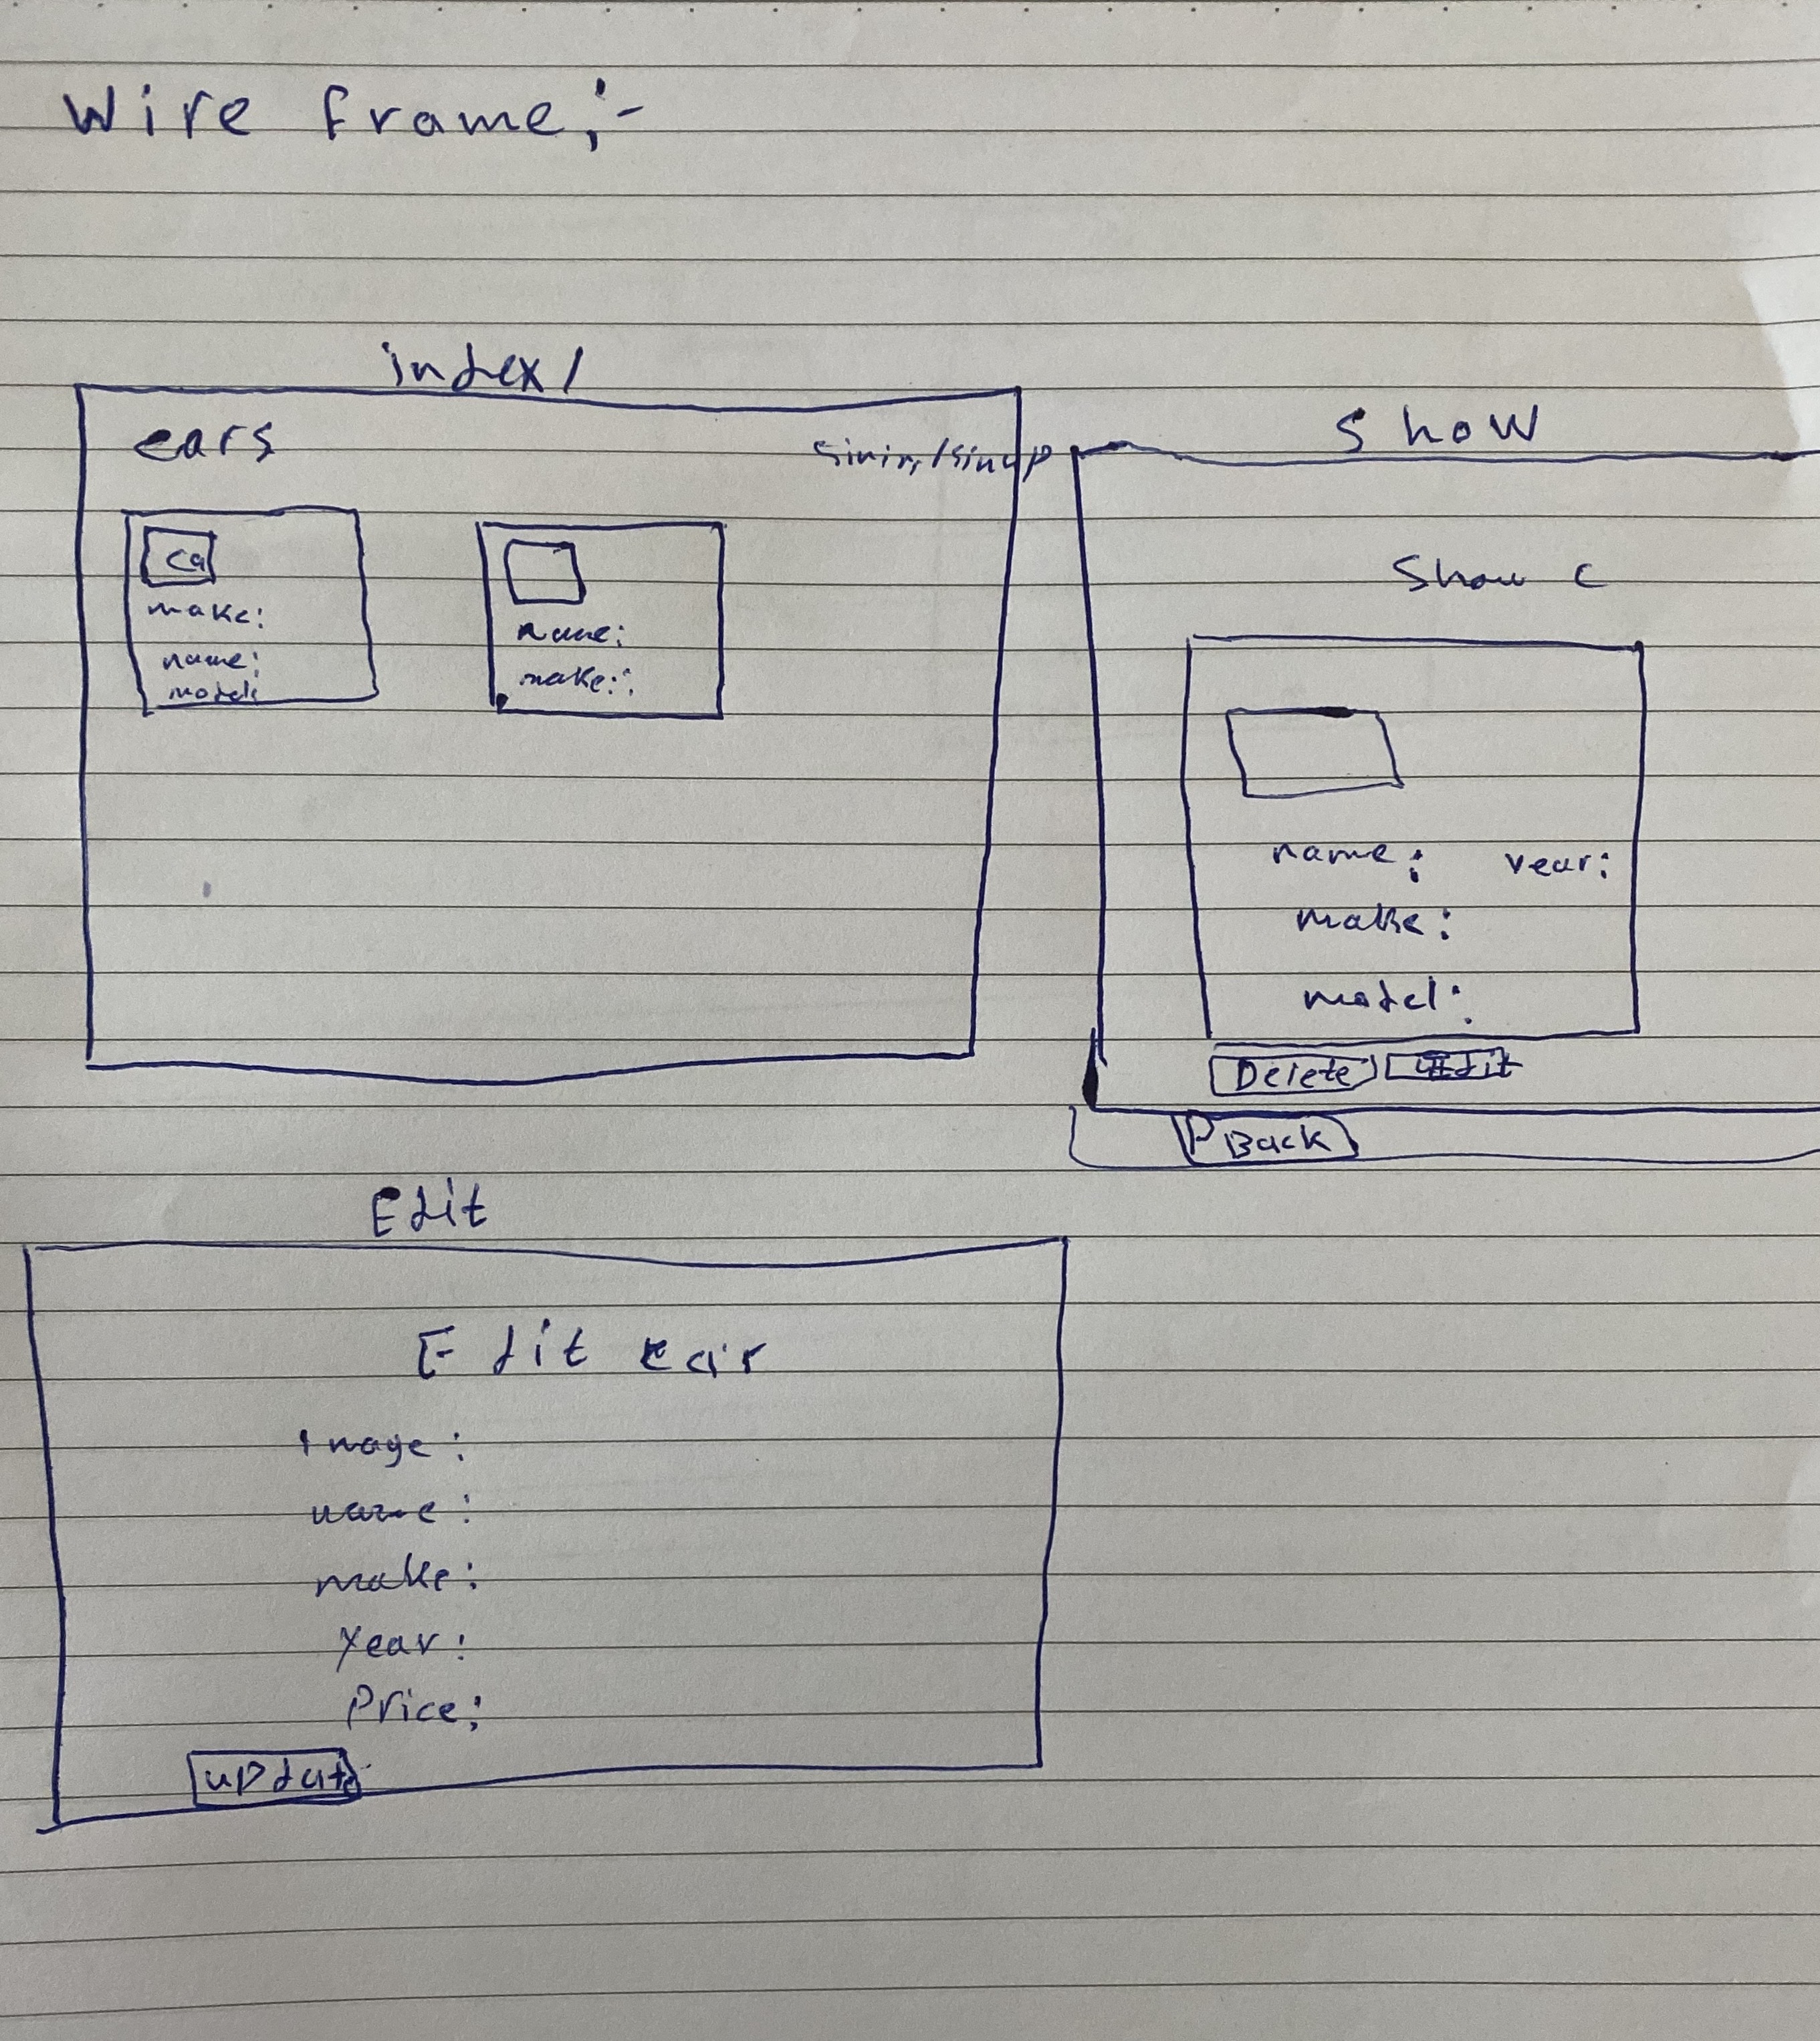 Wire frame:-
index/
cars
Sinin/sinup
ca
make:
name:
model:
name:
make:
Show
Show c
name: year:
make:
model:
Delete Edit
Back
Edit
Edit car
image:
name:
make:
year:
Price:
update